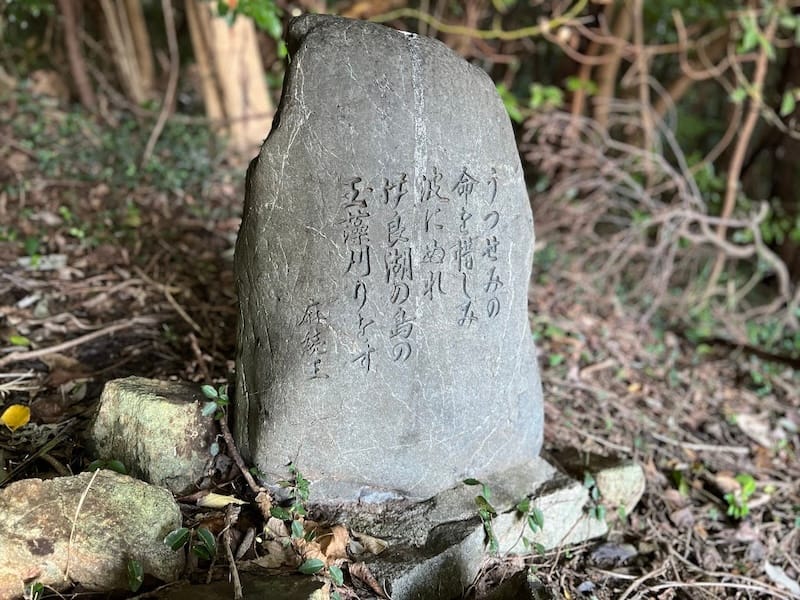 うつせみの
命を惜しみ
波にぬれ
伊良湖の島の
玉藻刈りをす
麻續王